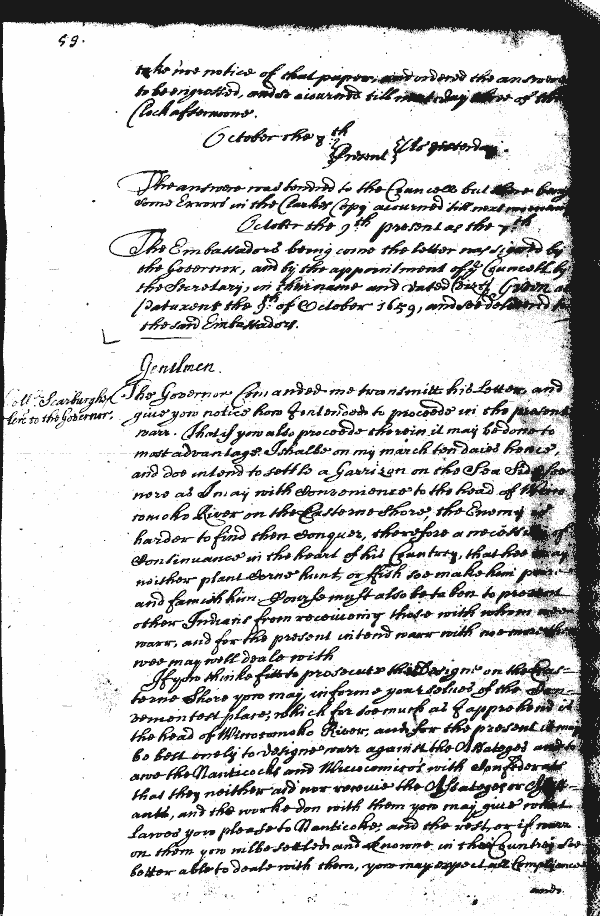 59.
take noe notice of that paper, and ordered the answere
to be engrossed, and so acourned till next day three of the
Clock afternoone.
October the 8th
Present As yesterday.
The answere was tendred to the Councell but there being
some Errors in the Clarkes Copy acourned till next morning
October the 9th present as the 7th
The Embassadors being come the letter was signed by
the Governor, and by the appointment of ye Councell by
the Secretary, in their name and dated thus Given at
Patuxent the 9th of October 1659, and soe delivered to
the said Embassadors.
Gentlmen.
Coll Scarburghs
lere to the Governor.
The Governor Comanded me transmitt his Letter, and
give yow notice how I intended to proceede in the present
warr. That if yow also proceede therein it may be done to
most advantage. I shalbe on my march ten daies hence,
and doe intend to settle a Garrizon on the Sea Side soe
nere as I may with Convenience to the head of
River on the Easterne Shore, the Enemy is
harder to find then Conquer, therefore a necessity of
Continuance in the heart of his Countrey, that hee may
neither plant Corne hunt, or ffish soe make him poore
and famish him Course must also be taken to prevent
other Indians from receiveing those with whom wee
warr, and for the present intend warr with noe more then
wee may well deale with
If yow thinke fitt to prosecute the Designe on the Eas-
terne Shore yow may informe your selves of the Con-
venientest place, which for soe much as I apprehend is
the head of Wicocomoko River, and for the present it may
be best onely to designe warr against the Assateges and to
awe the Nanticocks and Wicocomicos with Confederats
that they neither aid nor receive the Assateges or
ants, and the worke don with them yow may give what
Lawes yow please to Nanticoke, and the rest, or if warr
on them yow wilbe setled and knowne in the Countrey soe
better able to deale with them, yow may expect all Complyance
and